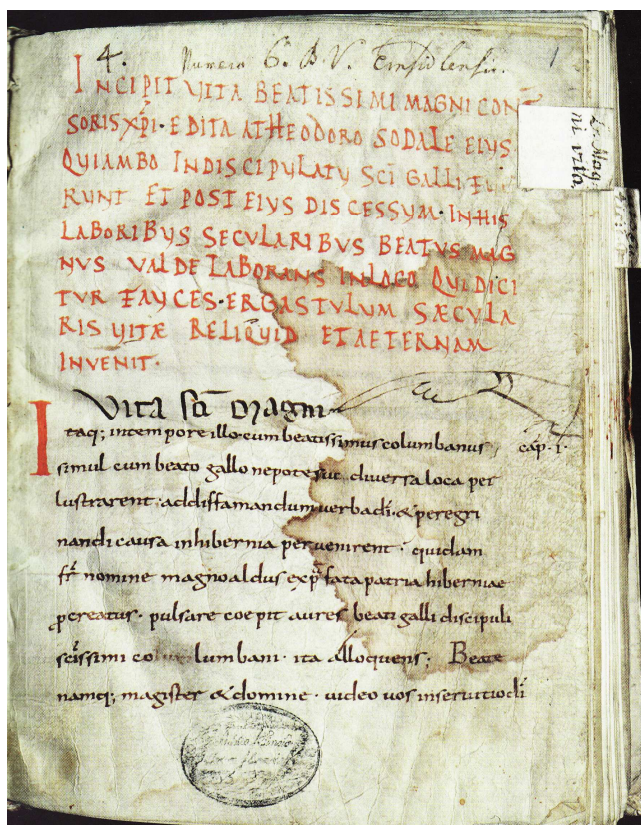 4. Numero 6. B. V. 1
INCIPIT VITA BEATISSIMI MAGNI CONF
SORIS XPI· EDITA ATHEODORO SODALE EIUS
QUI AMBO IN DISCIPULATU SCI GALLI FUE
RUNT ET POST EIUS DISCESSUM· IN HIS
LABORIBUS SECULARIBUS BEATUS MAG
NUS VALDE LABORANS IN LOCO QUI DICI
TUR FAUCES· ERGASTULUM SÆCULA
RIS UITÆ RELIQUID ET AETERNAM
INVENIT·
S. Mag
ni vita.
Vita sci Magni
Itaq; in tempore illo cum beatissimus columbanus cap· 1·
simul cum beato gallo nepote suo diversa loca per
lustrarent· ad diffamandum verba dī· & peregri
nandi causa in hibernia pervenirent· quidam
fr nomine magnoaldus ex p fata patria hiberniae
pcreatus· pulsare coepit aures beati galli discipuli
scissimi columbani· ita alloquens; Beate
namq; magister & domine· uideo uos in seruitio dī